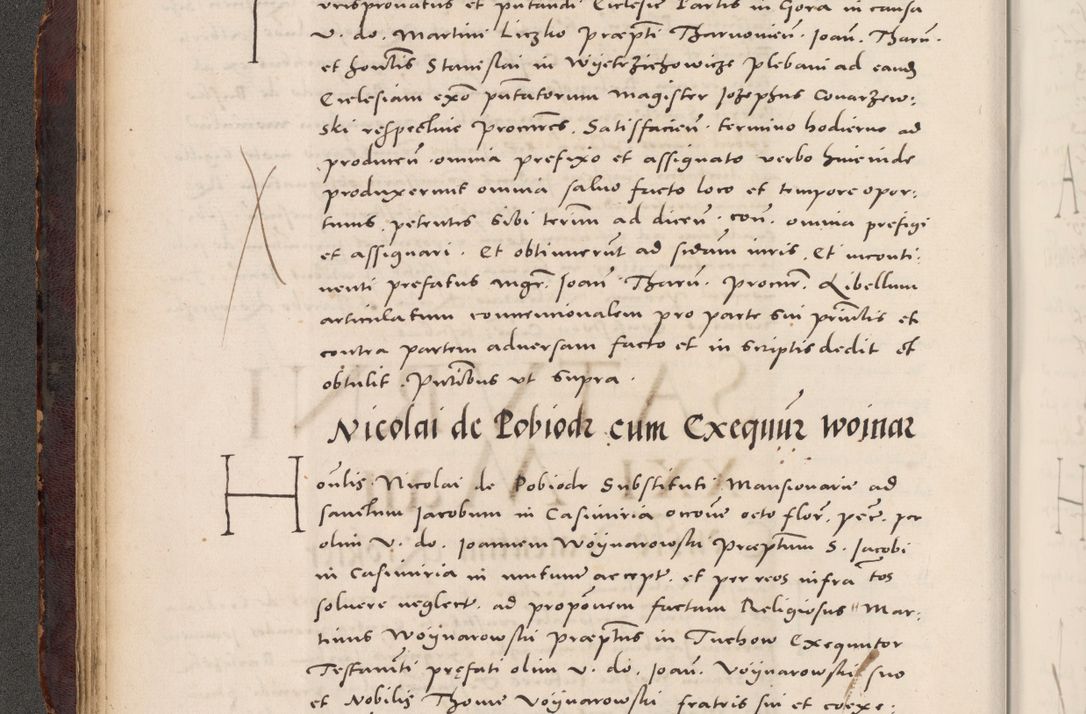 v. do. Martini Liczko Præpti Tharnovien̄. Ioan̄. Tharn̄.
et hontis Stanislai in Wyetrzichowicze plebani ad eand
Ecclesiam exo putatorum Magister Iozephus Conarzew:
ski respective Procures. Satisfacien̄. termino hodierno ad
producen̄. omnia prefixo et assignato verbo hincinde
produxerunt omnia salvo facto loco et tempore opor:
tunis. petentes sibi terim ad dicen̄. con̄. omnia prefigi
et assignari. Et obtinuerunt ad sidam iuris. Et inconti:
nenti prefatus Mgr. Ioan̄ Tharn̄. Procur. Libellum
articulatum conuencionalem pro parte sui printis et
contra partem adversam facto et in scriptis dedit et
obtulit. Puntibus ut supra.
Nicolai de Pobiodr cum Exequur Woinar
Honlis Nicolai de Pobiodr Substituti Mansionarie ad
sanctum Iacobum in Casimiria occone octo flor. per
olim v. do. Ioannem Woynarowski Præptum S. Iacobi
in Casimiria in mutum accept. et per reos infra tos
solvere neglect. ad proponem factam Religiosus Mar:
tinus Woynarowski Præptus in Tuchow Exequutor
Testamti prefati olim v. do. Ioan̄. Woynarowski suo
et Nobilis Thome Woynarowski fratris sui et coexe: